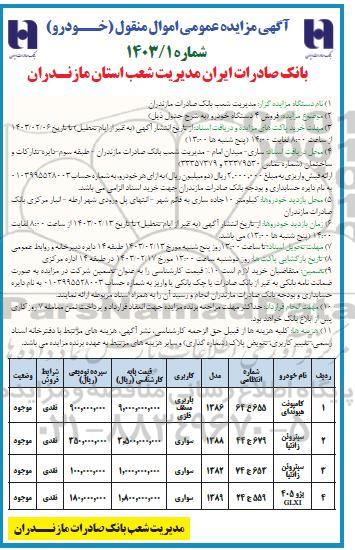 آگهی مزایده عمومی اموال منقول (خـــودرو)
شماره ۱۴۰۳/۱
بانک صادرات ایران مدیریت شعب استان مازنـــدران
۱) نام دستگاه مزایده گزار: مدیریت شعب بانک صادرات مازندران
۲) موضوع مزایده: فروش ۴ دستگاه خودرو (به شرح جدول ذیل)
۳) مهلت خرید پاکت های مزایده و دریافت اسناد: از تاریخ انتشار آگهی (به غیر از ایام تعطیل) تا تاریخ ۱۴۰۳/۰۲/۰۶
از ساعت ۸:۰۰ لغایت ۱۴:۰۰ (پنج شنبه ها ۱۳:۰۰)
۴) محل دریافت اسناد: ساری - میدان امام - مدیریت شعب بانک صادرات مازندران - طبقه سوم - دایره تدارکات و
ساختمان (شماره تماس:
ارائه فیش واریزی به مبلغ ۲,۰۰۰,۰۰۰ ریال (دو میلیون ریال) به ازای هر خودرو، به شماره حساب
به نام دایره حسابداری و بودجه بانک صادرات مازندران جهت خرید اسناد الزامی می باشد.
۵) محل بازدید خودروها: کیلومتر ۱۰ جاده ساری به قائم شهر - انتهای پل ورودی شهر ارطه - انبار مرکزی بانک
صادرات مازندران
۶) زمان بازدید خودروها: از تاریخ انتشار آگهی (به غیر از ایام تعطیل) تا تاریخ ۱۴۰۳/۰۲/۱۳ از ساعت ۸:۰۰ لغایت
۱۴:۰۰ (پنج شنبه ها ۱۳:۰۰) می باشد.
۷) مهلت تحویل اسناد: تا ساعت ۱۳:۰۰ روز پنج شنبه مورخ ۱۴۰۳/۰۲/۱۳ طبقه ۱۴ دایره دبیرخانه و روابط عمومی
۸) تاریخ بازگشایی پاکت ها: روز دوشنبه ساعت ۱۳:۰۰ مورخ ۱۴۰۳/۰۲/۱۷ در طبقه ۱۴ اداره مرکزی
۹) تضمین: متقاضیان خرید لازم است ۱۰٪ قیمت کارشناسی را به عنوان تضمین شرکت در مزایده به صورت
ضمانت نامه بانکی به غیر از بانک صادرات یا چک بانکی یا واریز به شماره حساب به نام دایره
حسابداری و بودجه بانک صادرات مازندران انجام و رسید آن را به همراه اسناد مربوطه ارائه نمایند.
۱۰) مهلت انجام قرارداد: حداکثر مهلت مراجعه برنده مزایده جهت انعقاد قرارداد و پرداخت ثمن معامله ۷ روز کاری
پس از ابلاغ بانک خواهد بود.
۱۱) هزینه ها: کلیه هزینه ها از قبیل حق الزحمه کارشناسی، نشر آگهی، هزینه های مرتبط با دفترخانه اسناد
رسمی، تغییر کاربری، تعویض پلاک (شماره گذاری) و سایر هزینه های مرتبط به عهده برنده مزایده می باشد.
ردیف نام خودرو شماره انتظامی مدل کاربری قیمت پایه کارشناسی (ریال) سپرده تودیعی (ریال) شرایط فروش وضعیت
۱ کامیونت هیوندای ۶۵۵ ع ۶۴ ۱۳۸۶ باربری مسقف فلزی ۹,۰۰۰,۰۰۰,۰۰۰ ۹۰۰,۰۰۰,۰۰۰ نقدی موجود
۲ سیتروئن زانتیا ۶۷۹ ج ۴۴ ۱۳۸۸ سواری ۳,۵۰۰,۰۰۰,۰۰۰ ۳۵۰,۰۰۰,۰۰۰ نقدی موجود
۳ سیتروئن زانتیا ۶۵۳ ج ۷۴ ۱۳۸۲ سواری ۱,۰۰۰,۰۰۰,۰۰۰ ۱۰۰,۰۰۰,۰۰۰ نقدی موجود
۴ پژو ۴۰۵ GLXI ۵۵۹ ج ۲۴ ۱۳۸۹ سواری ۱,۸۰۰,۰۰۰,۰۰۰ ۱۸۰,۰۰۰,۰۰۰ نقدی موجود
مدیریت شعب بانک صادرات مازنـــدران